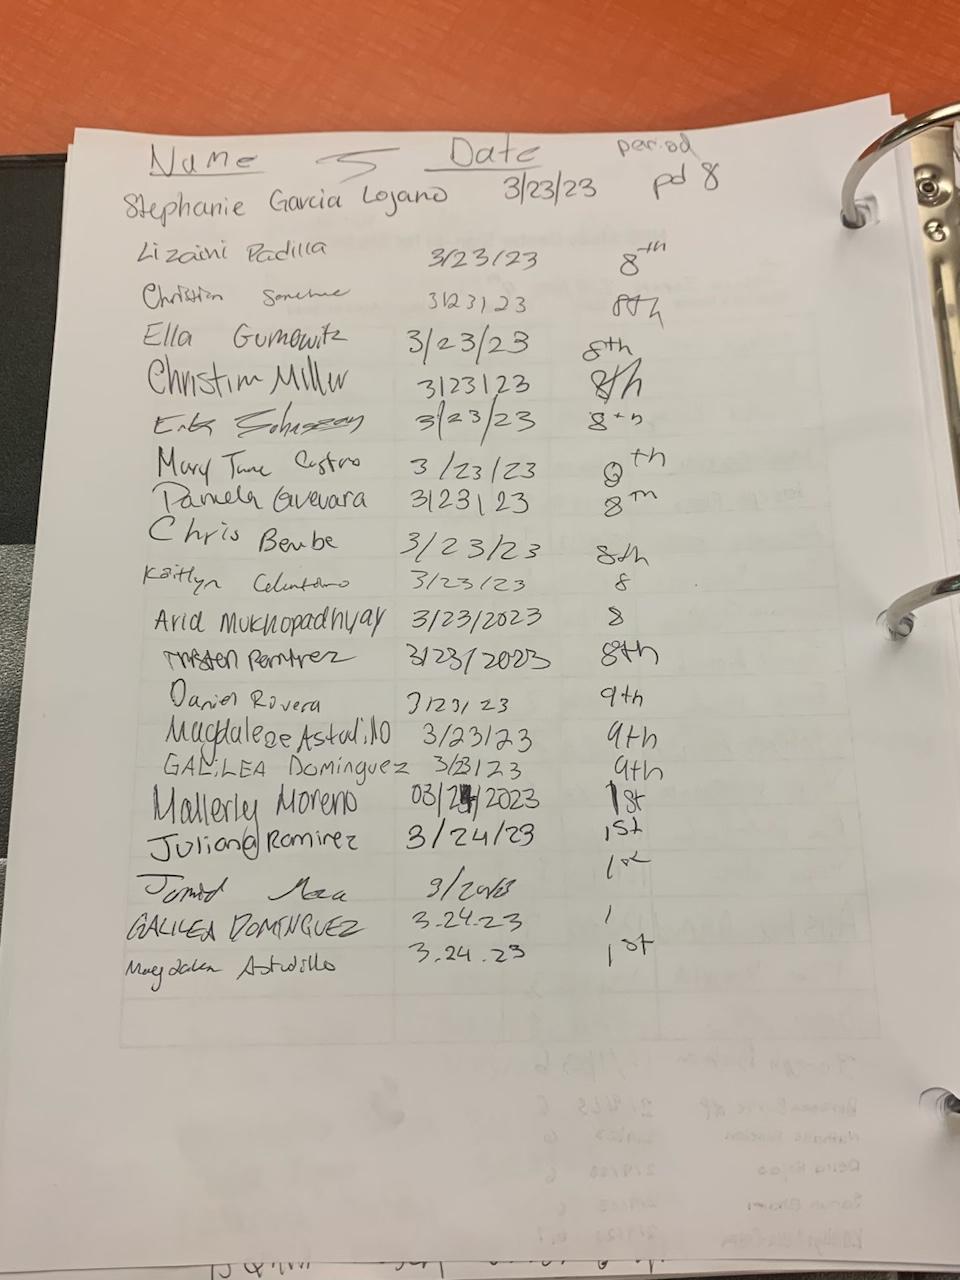 Name Date period
Stephanie Garcia Lozano 3/23/23 pd 8
Lizaini Padilla 3/23/23 8th
Christian 3/23/23 8th
Ella Gurnowitz 3/23/23 8th
Christian Miller 3/23/23 8th
Erik 3/23/23 8th
Mary Jane Castro 3/23/23 8th
Daniela Guevara 3/23/23 8th
Chris Berube 3/23/23 8th
Kaitlyn 3/23/23 8
Arid Mukhopadhyay 3/23/2023 8
Tristen Ramirez 3/23/2023 8th
Daniel Rovera 3/23/23 9th
Magdalene Astudillo 3/23/23 9th
GALILEA Dominguez 3/23/23 9th
Mallerly Moreno 03/24/2023 1st
Juliana Ramirez 3/24/23 1st
1st
GALILEA DOMINGUEZ 3.24.23 1
Magdalen Astudillo 3.24.23 1st